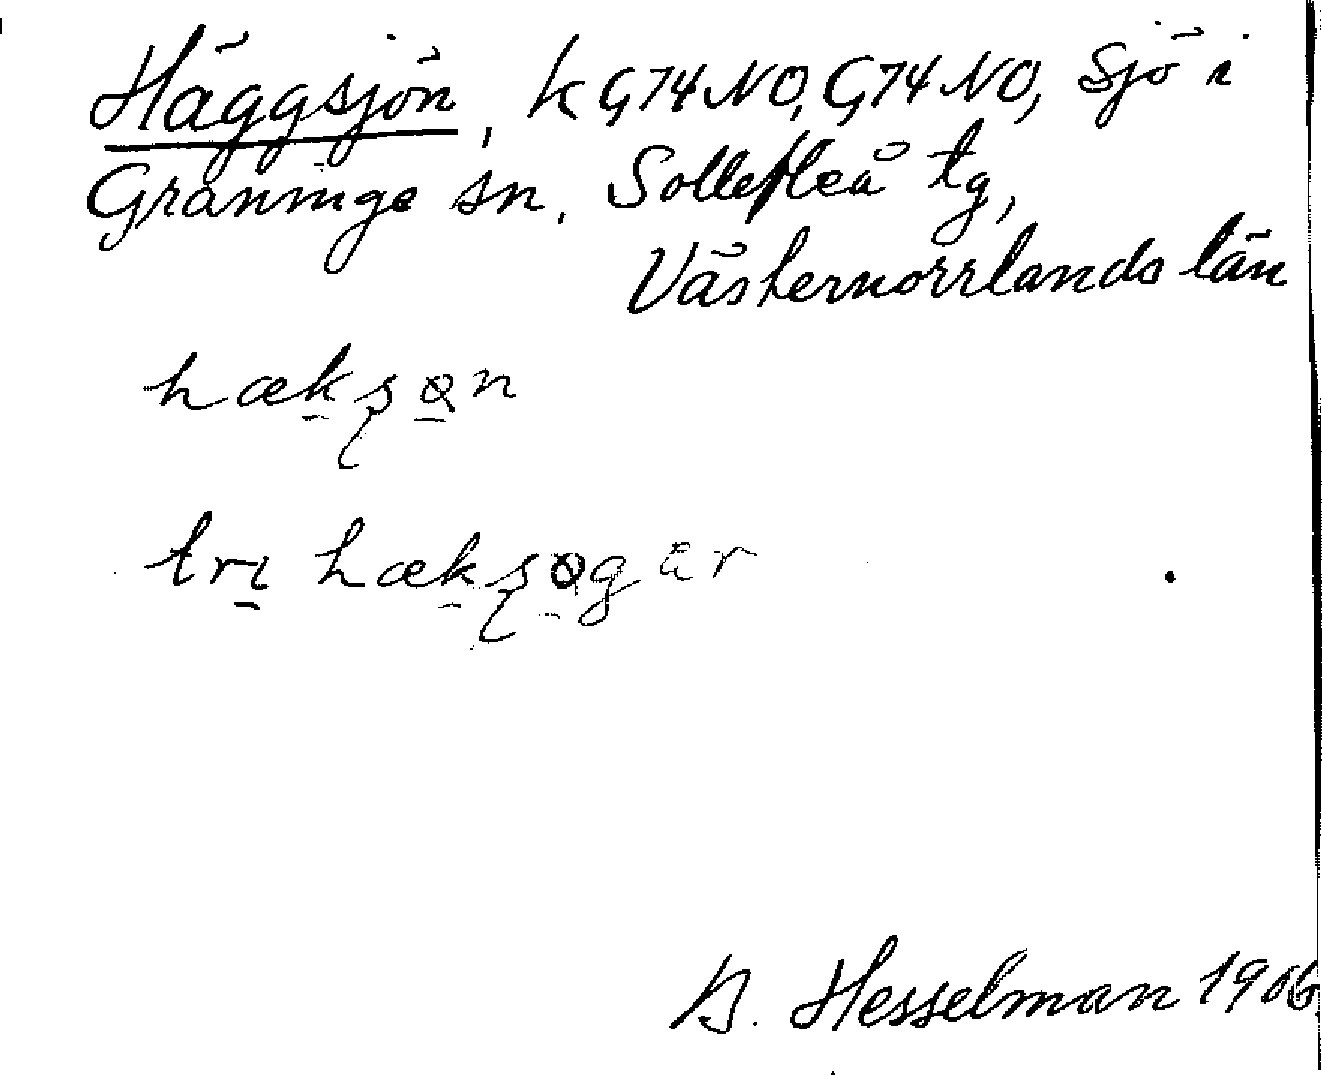 Häggsjön, k G74NO, G74NO, sjö i
Graninge sn, Sollefteå tg,
Västernorrlands län
hækʂøn
tri hækʂøgar
B. Hesselman 1906